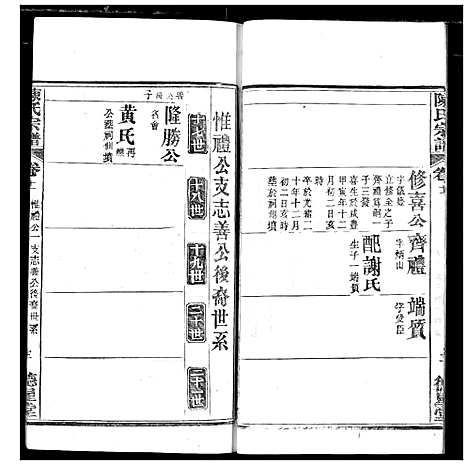 陳氏宗譜
卷十
修喜公
字儀錄
立按全之子
齊禮爲嗣一
子三發
喜生於咸豊
甲寅年十二
月初二日亥
時
卒於光緒二
十年十一月
初二日亥時
墓於祠側墳
配謝氏
生子一端質
齊禮
字炳山
端質
字受臣
德星堂
惟禮公支志善公後裔世系
十七世
十八世
十九世
二十世
二十一世
隆勝公
名會
黄氏
再醮
公墓祠側墳
陳氏宗譜
卷十
惟禮公一支志善公後裔世系
德星堂